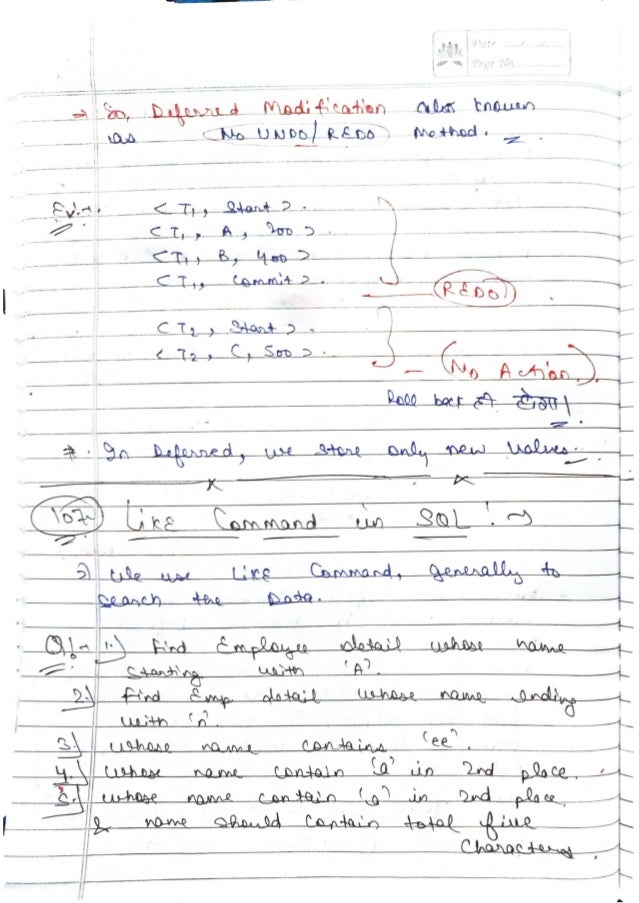 Date
Page No.
→ So, Deferred Modification also known
as No UNDO/REDO Method.
Ex:-
<T1, Start>.
<T1, A, 200>
<T1, B, 400>
<T1, Commit>.
REDO
<T2, Start>.
<T2, C, 500>.
- (No Action).
Roll back नहीं होगा।
* In Deferred, we store only new values.
x x
107- LIKE Command in SQL :→
⇒ We use LIKE Command, generally to
search the Data.
Q:- 1.) Find Employee detail whose name
starting with 'A'.
2.) Find Emp detail whose name ending
with 'n'.
3.) whose name contains 'ee'.
4.) whose name contain 'a' in 2nd place.
5.) whose name contain 'a' in 2nd place,
& name should contain total five
Characters.